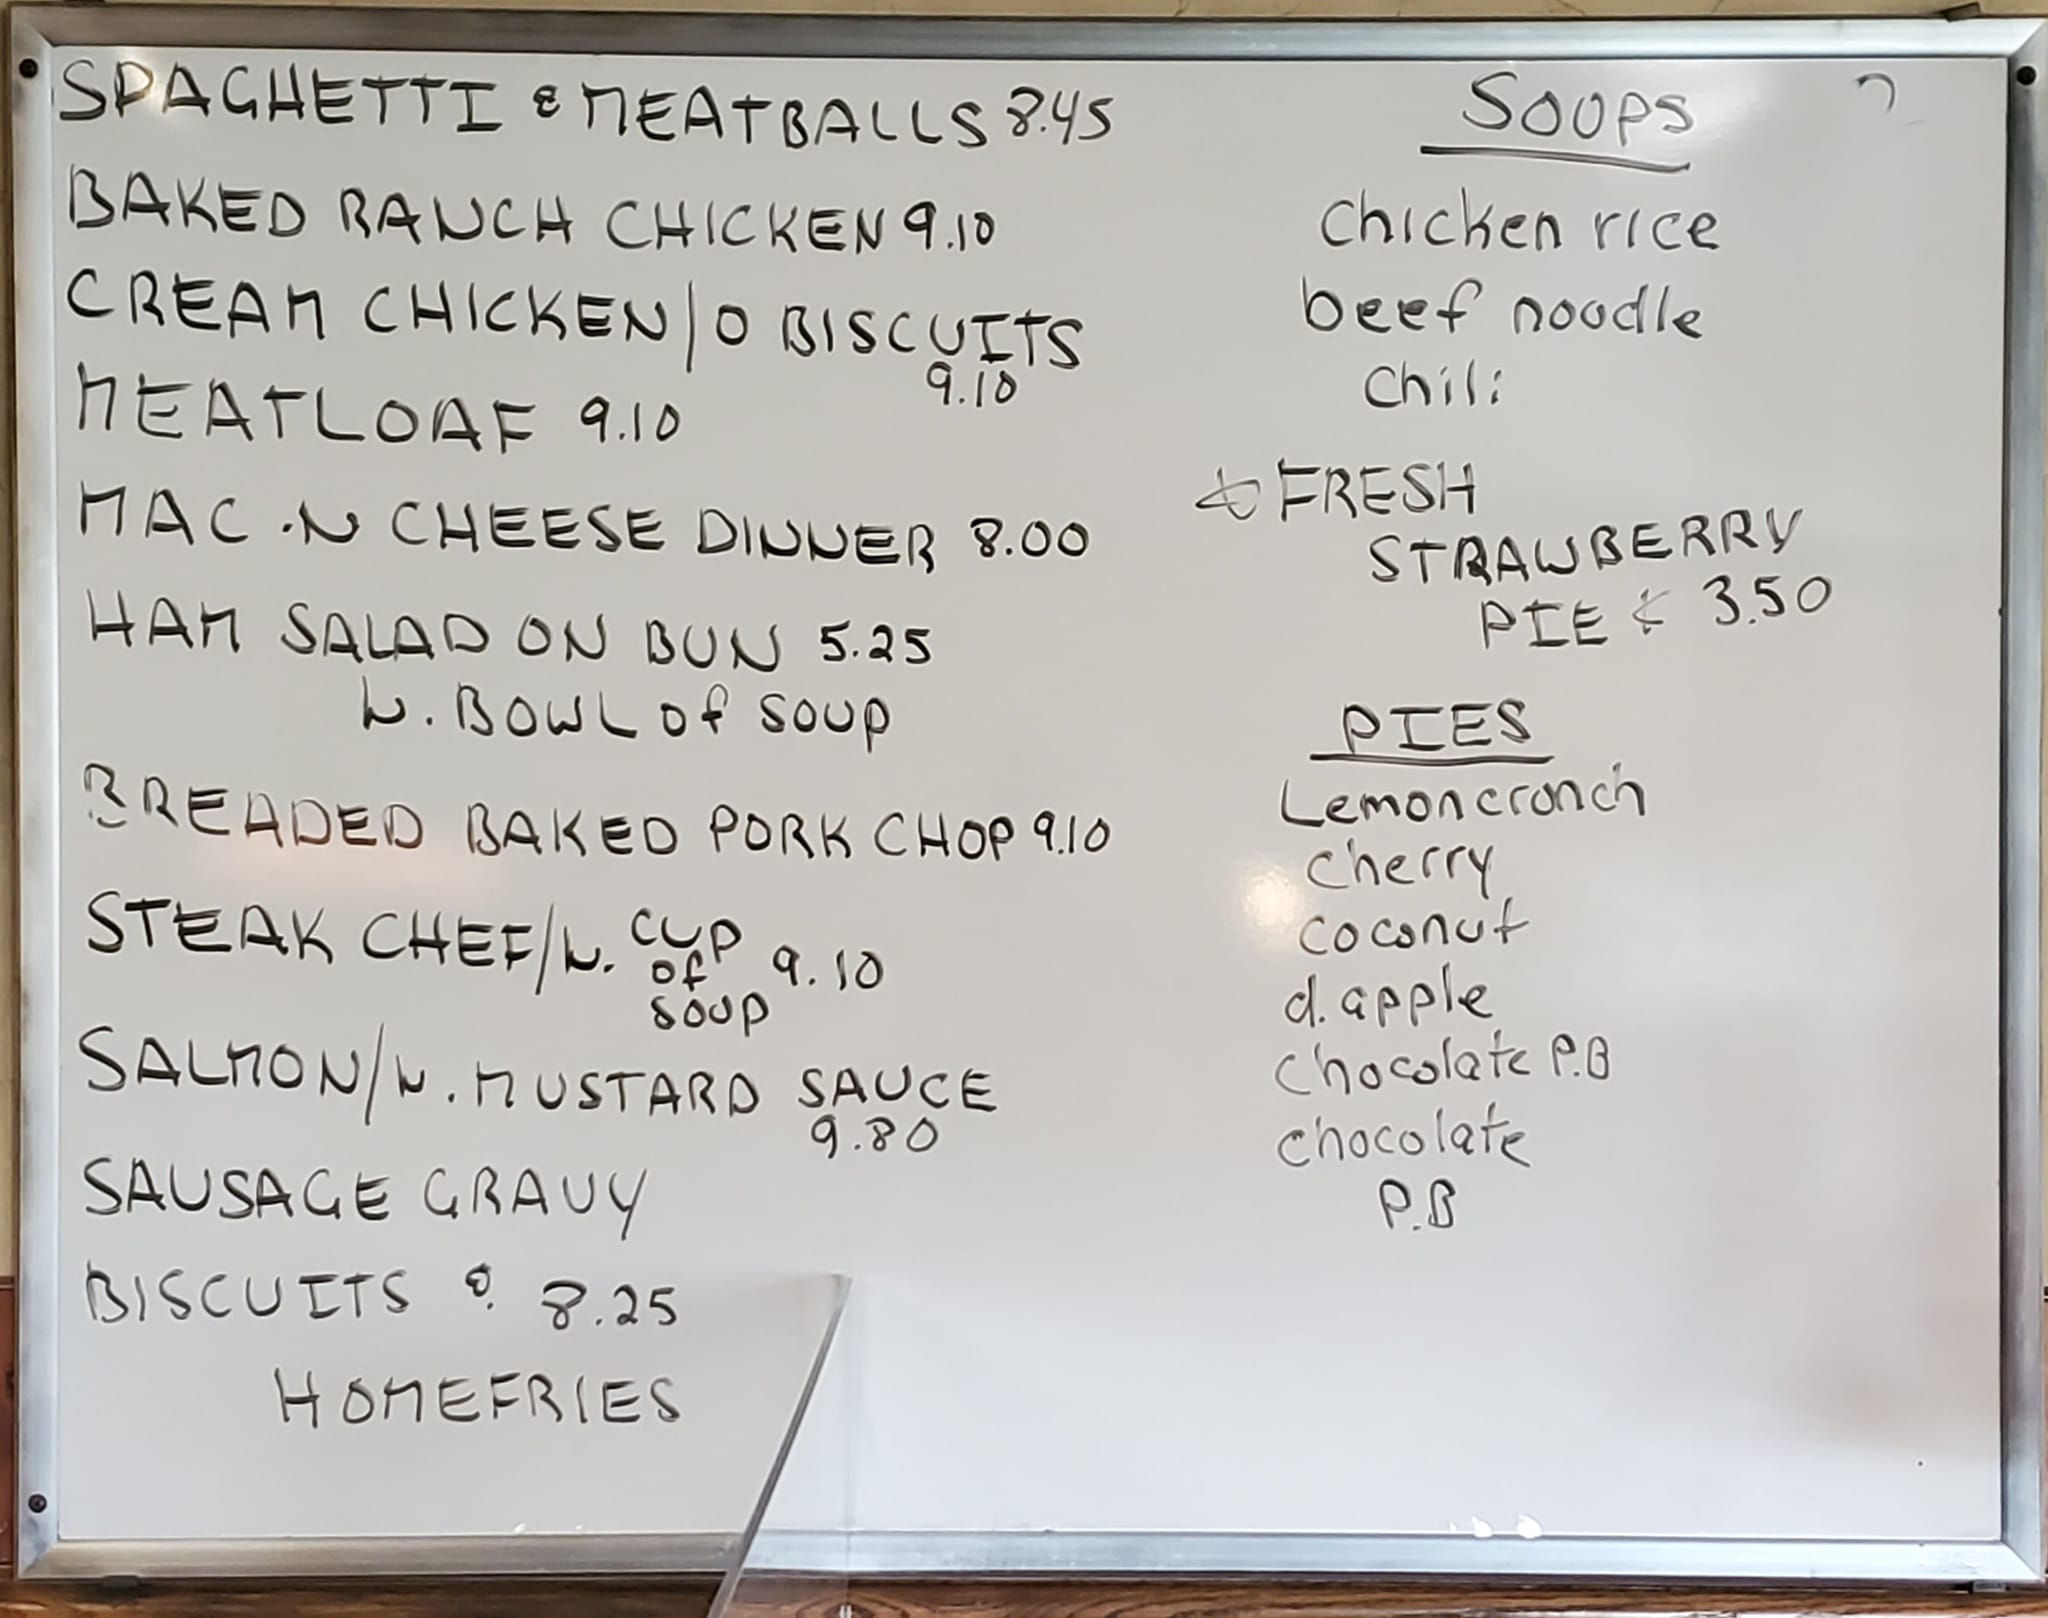 SPAGHETTI & MEATBALLS 8.45
BAKED RANCH CHICKEN 9.10
CREAM CHICKEN/O BISCUITS
9.10
MEATLOAF 9.10
MAC.N CHEESE DINNER 8.00
HAM SALAD ON BUN 5.25
W. BOWL of SOUP
BREADED BAKED PORK CHOP 9.10
STEAK CHEF/W. CUP
of 9.10
SOUP
SALMON/W. MUSTARD SAUCE
9.80
SAUSAGE GRAVY
BISCUITS & 8.25
HOMEFRIES
SOUPS
chicken rice
beef noodle
chili
FRESH
STRAWBERRY
PIE 3.50
PIES
Lemon cronch
cherry
coconut
d. apple
chocolate P.B
chocolate
P.B